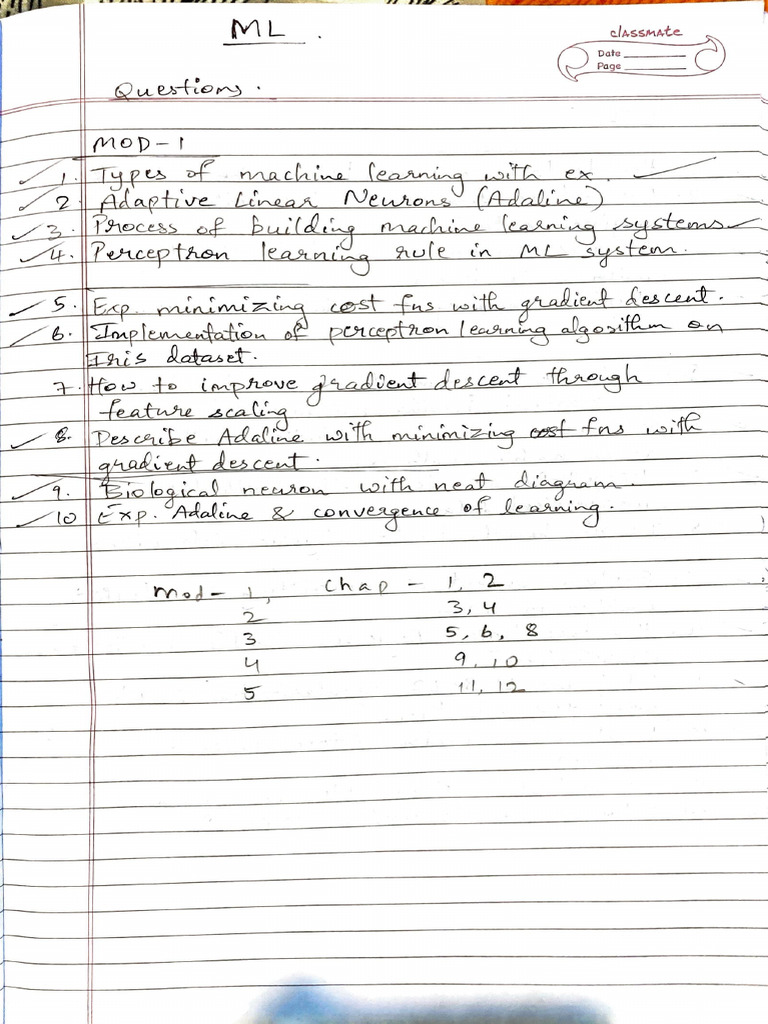 ML .
classmate
Date
Page
Questions.
MOD-1
1. Types of machine learning with ex.
2. Adaptive Linear Neurons (Adaline)
3. Process of building machine learning systems
4. Perceptron learning rule in ML system.
5. Exp. minimizing cost fns with gradient descent.
6. Implementation of perceptron learning algorithm on
Iris dataset.
7. How to improve gradient descent through
feature scaling
8. Describe Adaline with minimizing cost fns with
gradient descent.
9. Biological neuron with neat diagram.
10 Exp. Adaline & convergence of learning.
Mod- 1, Chap - 1, 2
2 3, 4
3 5, 6, 8
4 9, 10
5 11, 12